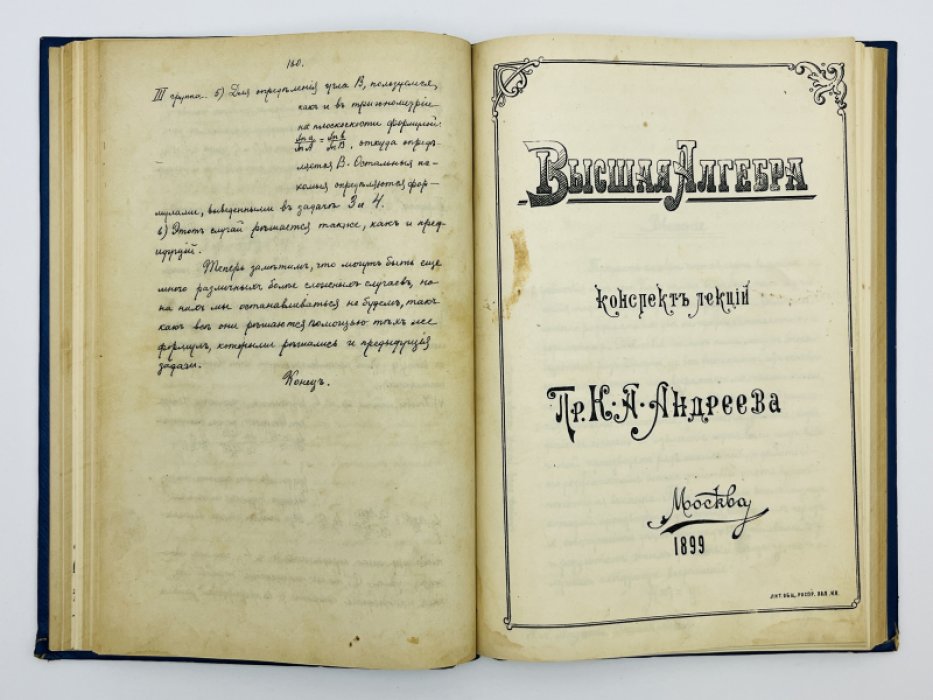 160.
III группа. 5) Для опредѣленія угла B, пользуемся,
какъ и въ тригонометріи
на плоскости формулой:
Sin a/Sin A = Sin b/Sin B, откуда опредѣ-
ляется B. Остальныя не-
комыя опредѣляются фор-
мулами, выведенными въ задачѣ 3 и 4.
6) Этотъ случай рѣшается также, какъ и пред-
идущій.
Теперь замѣтимъ, что могутъ быть еще
много различныхъ болѣе сложныхъ случаевъ, но
на нихъ мы останавливаться не будемъ, такъ
какъ всѣ они рѣшаются помощью тѣхъ же
формулъ, которыми рѣшались и предыдущія
задачи.
Конецъ.
Высшая Алгебра
конспектъ лекцій
Пр. К. А. Андреева
Москва
1899
ЛИТ. ОБЩ. РАСПР. ПОЛ. КН.